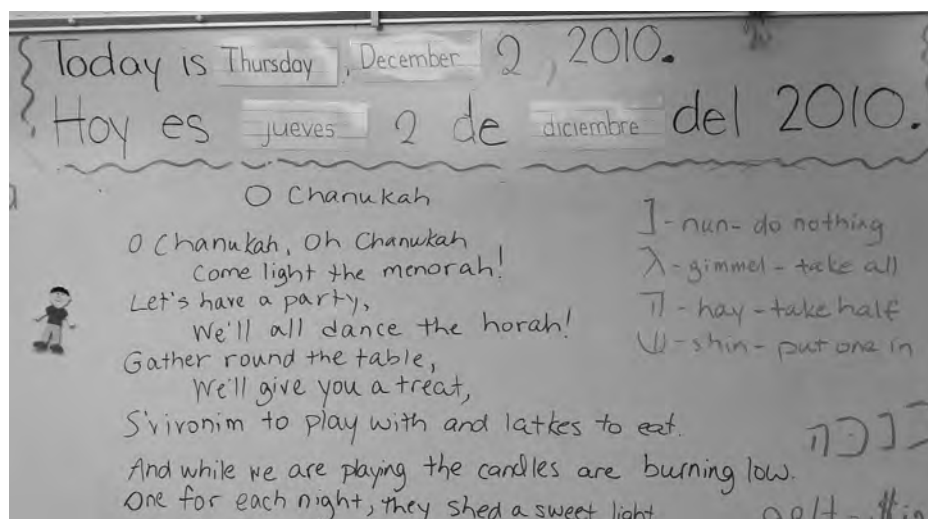 Today is Thursday, December 2, 2010.
Hoy es jueves 2 de diciembre del 2010.
O Chanukah
O Chanukah, Oh Chanukah
Come light the menorah!
Let's have a party,
We'll all dance the horah!
Gather round the table,
We'll give you a treat,
S'vivonim to play with and latkes to eat.
And while we are playing the candles are burning low.
One for each night, they shed a sweet light
נ - nun - do nothing
ג - gimmel - take all
ה - hay - take half
ש - shin - put one in